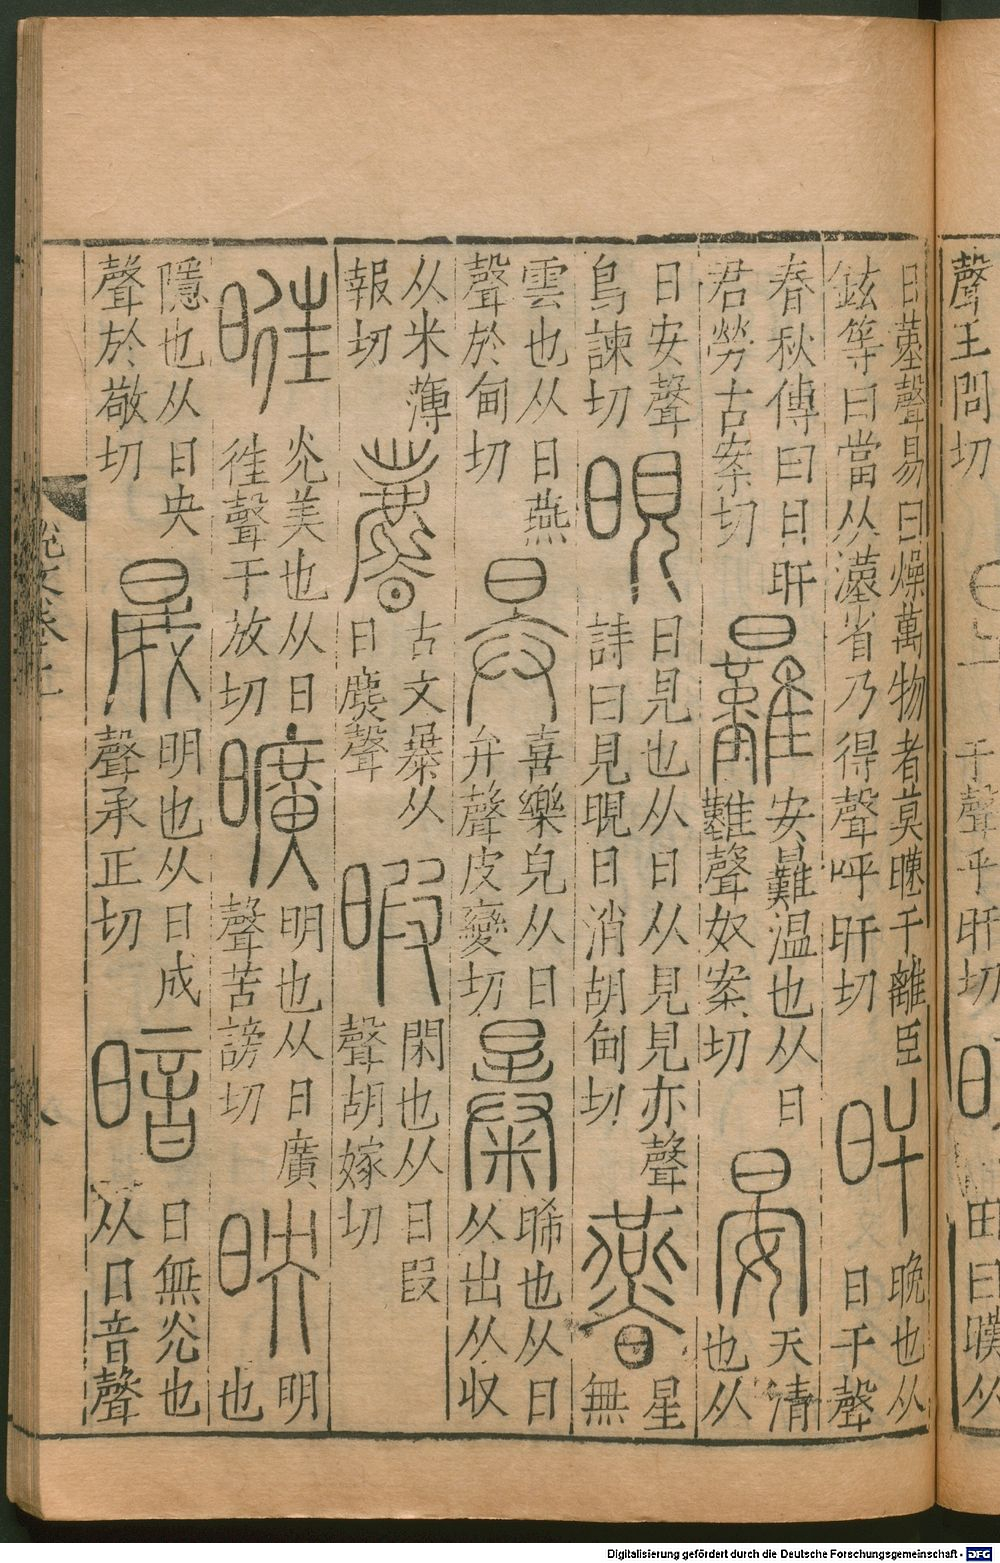 聲王問切
于聲乎旰切
田曰暵从
日𦰩聲易曰燥萬物者莫暵于離臣鉉等曰當从漢省乃得聲呼旰切 旰 晚也从日干聲
春秋傳曰日旰君勞古案切 㬮 安㬮温也从日難聲奴案切 晏 天清也从
日安聲烏諫切 晛 日見也从日从見見亦聲詩曰見晛曰消胡甸切 曣 星無
雲也从日燕聲於甸切 昪 喜樂皃从日弁聲皮變切 㬥 晞也从日从出从収
从米薄報切 𣋴 古文㬥从日麃聲 暇 閑也从日叚聲胡嫁切
暀 光美也从日往聲于放切 曠 明也从日廣聲苦謗切 映 明也
隱也从日央聲於敬切 晟 明也从日成聲承正切 暗 日無光也从日音聲
說文卷七
八
Digitalisierung gefördert durch die Deutsche Forschungsgemeinschaft - DFG